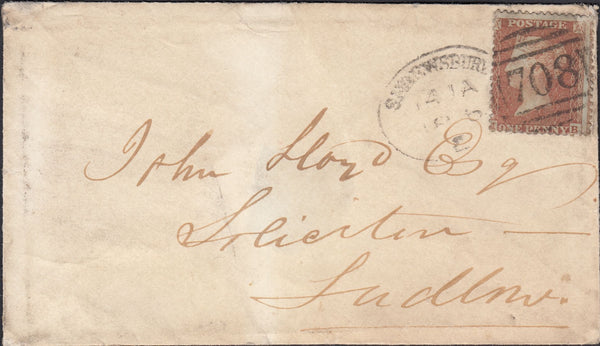 POSTAGE
SHREWSBURY
708
14 JA
ONE PENNY
John Lloyd Esq.
Solicitor —
Ludlow.